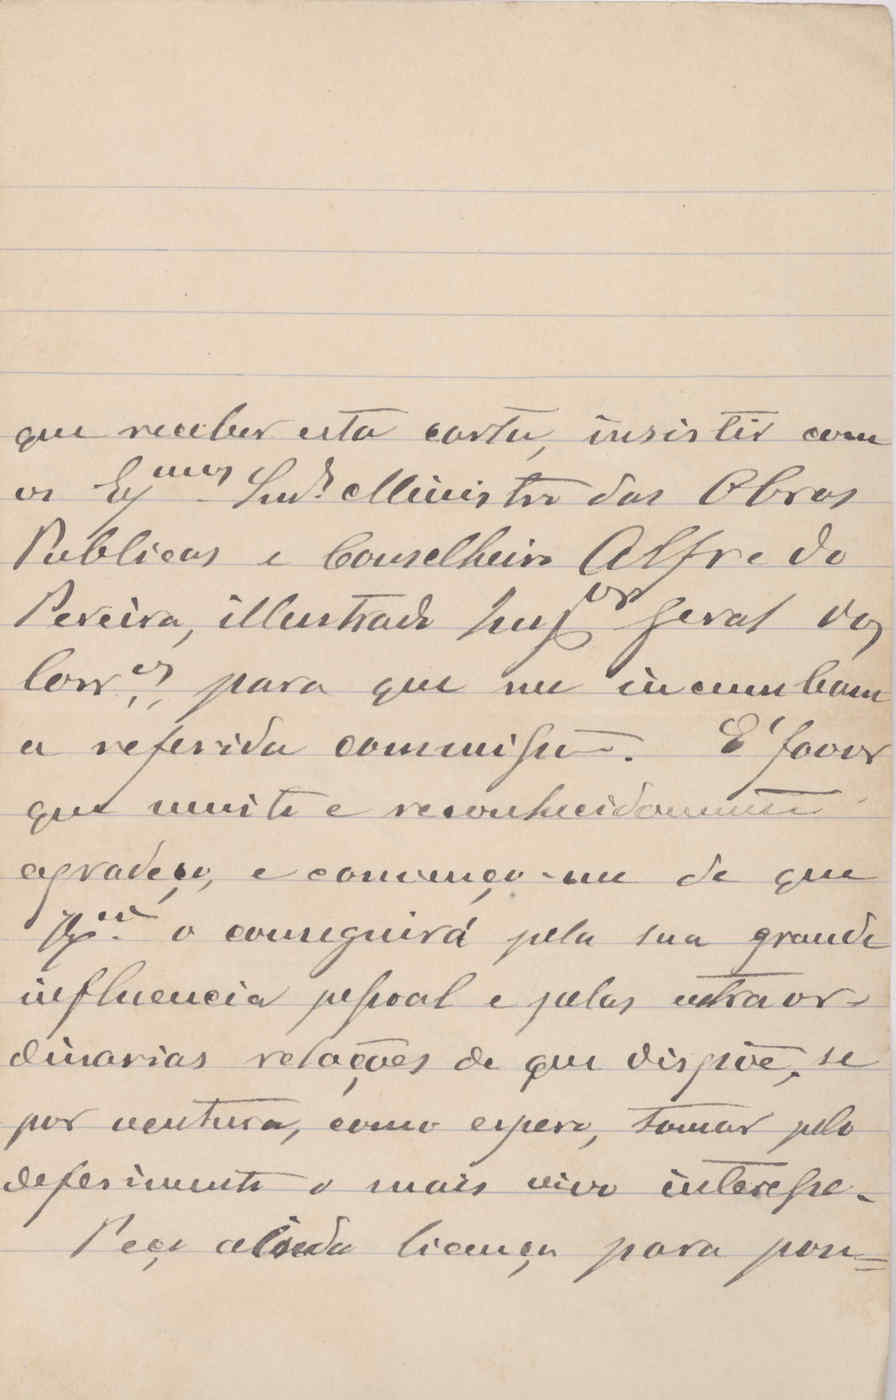 que receber esta carta, insistir com
os Ex.mos Snrs. Ministro das Obras
Publicas e Conselheiro Alfredo
Pereira, illustrado Insp.or Geral dos
Corr.os, para que me incumbam
a referida commissão. E' favor
que muito e reconhecidamente
agradeço, e convenço-me de que
V. Ex.cia o conseguirá pela sua grande
influencia pessoal e pelas extraor-
dinarias relações de que dispõe, se
por ventura, como espero, tomar pelo
deferimento o mais vivo interesse.
Peço ainda licença para pon=